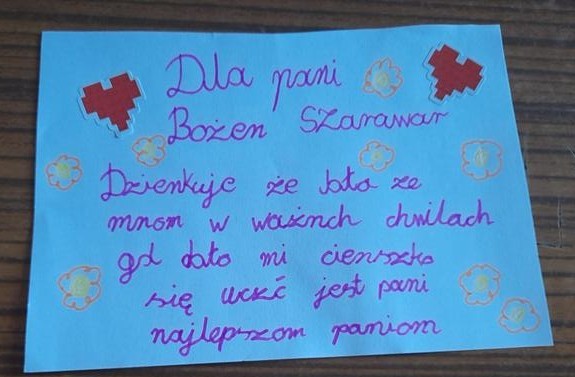 Dla pani
Bożen Szarawar
Dzienkuje że bato ze
mnom w ważnch chwilach
gd bato mi cienszko
się uczć jest pani
najlepszom paniom